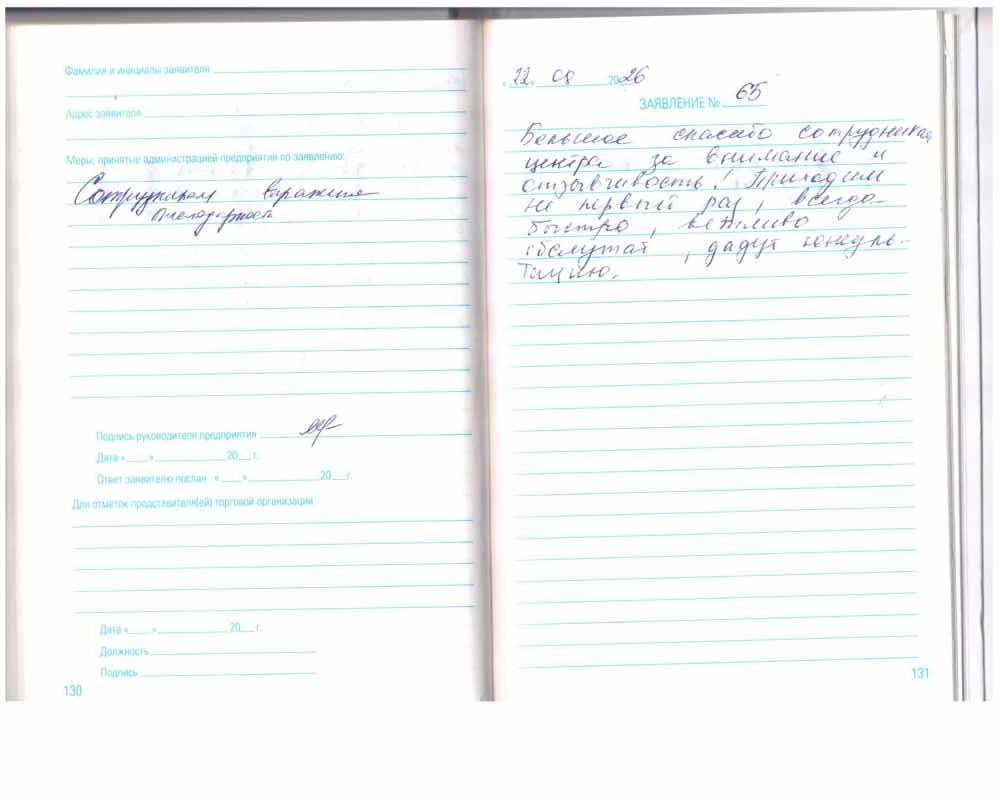 Фамилия и инициалы заявителя
Адрес заявителя
Меры, принятые администрацией предприятия по заявлению:
Сотрудникам
Подпись руководителя предприятия
Дата «___» ___ 20__ г.
Ответ заявителю послан «___» ___ 20__ г.
Для отметок представителя(ей) торговой организации
Дата «___» ___ 20__ г.
Должность
Подпись
130
«22» 01 2026
ЗАЯВЛЕНИЕ № 65
Большое спасибо сотрудникам
центра за внимание и
отзывчивость! Приходим
не первый раз, всегда
быстро, вежливо
обслужат, дадут консуль-
тацию.
131